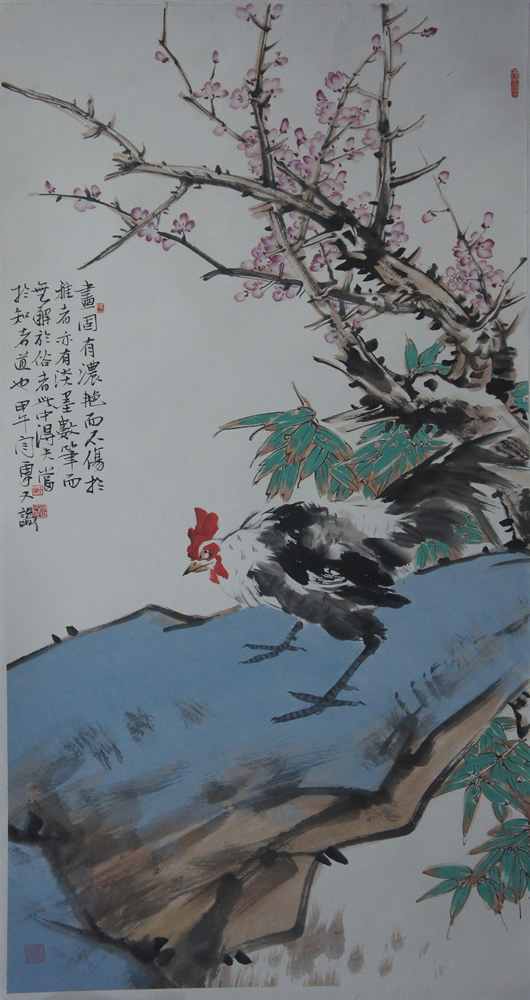 畫固有濃艷而不傷於
雅者亦有淡墨數筆而
無解於俗者此中得失當
於知者道也甲午閆勇又識